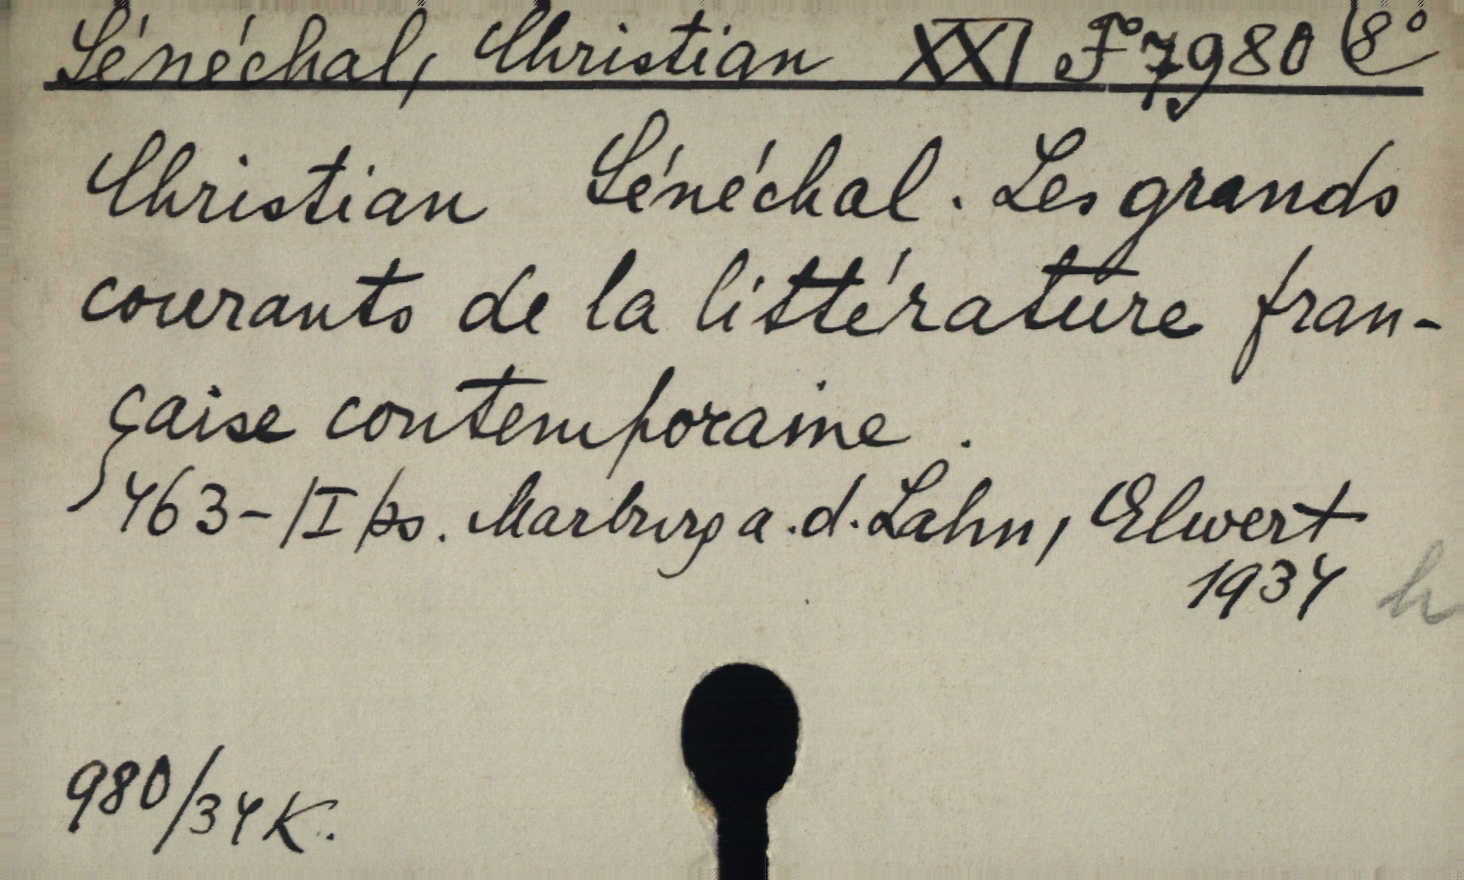 Sénéchal, Christian XXI F° 7980 8°
Christian Sénéchal. Les grands
courants de la littérature fran-
çaise contemporaine.
463-/I/ps. Marburg a.d. Lahn, Elwert
1934 h
980/34 K.